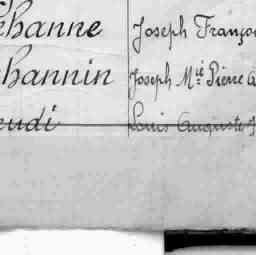 ehanne Joseph Franço
channin Joseph M.ie Pierre A
eudi Louis Auguste J